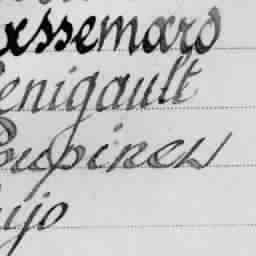 assemard
enigault
Poupinel
ujo